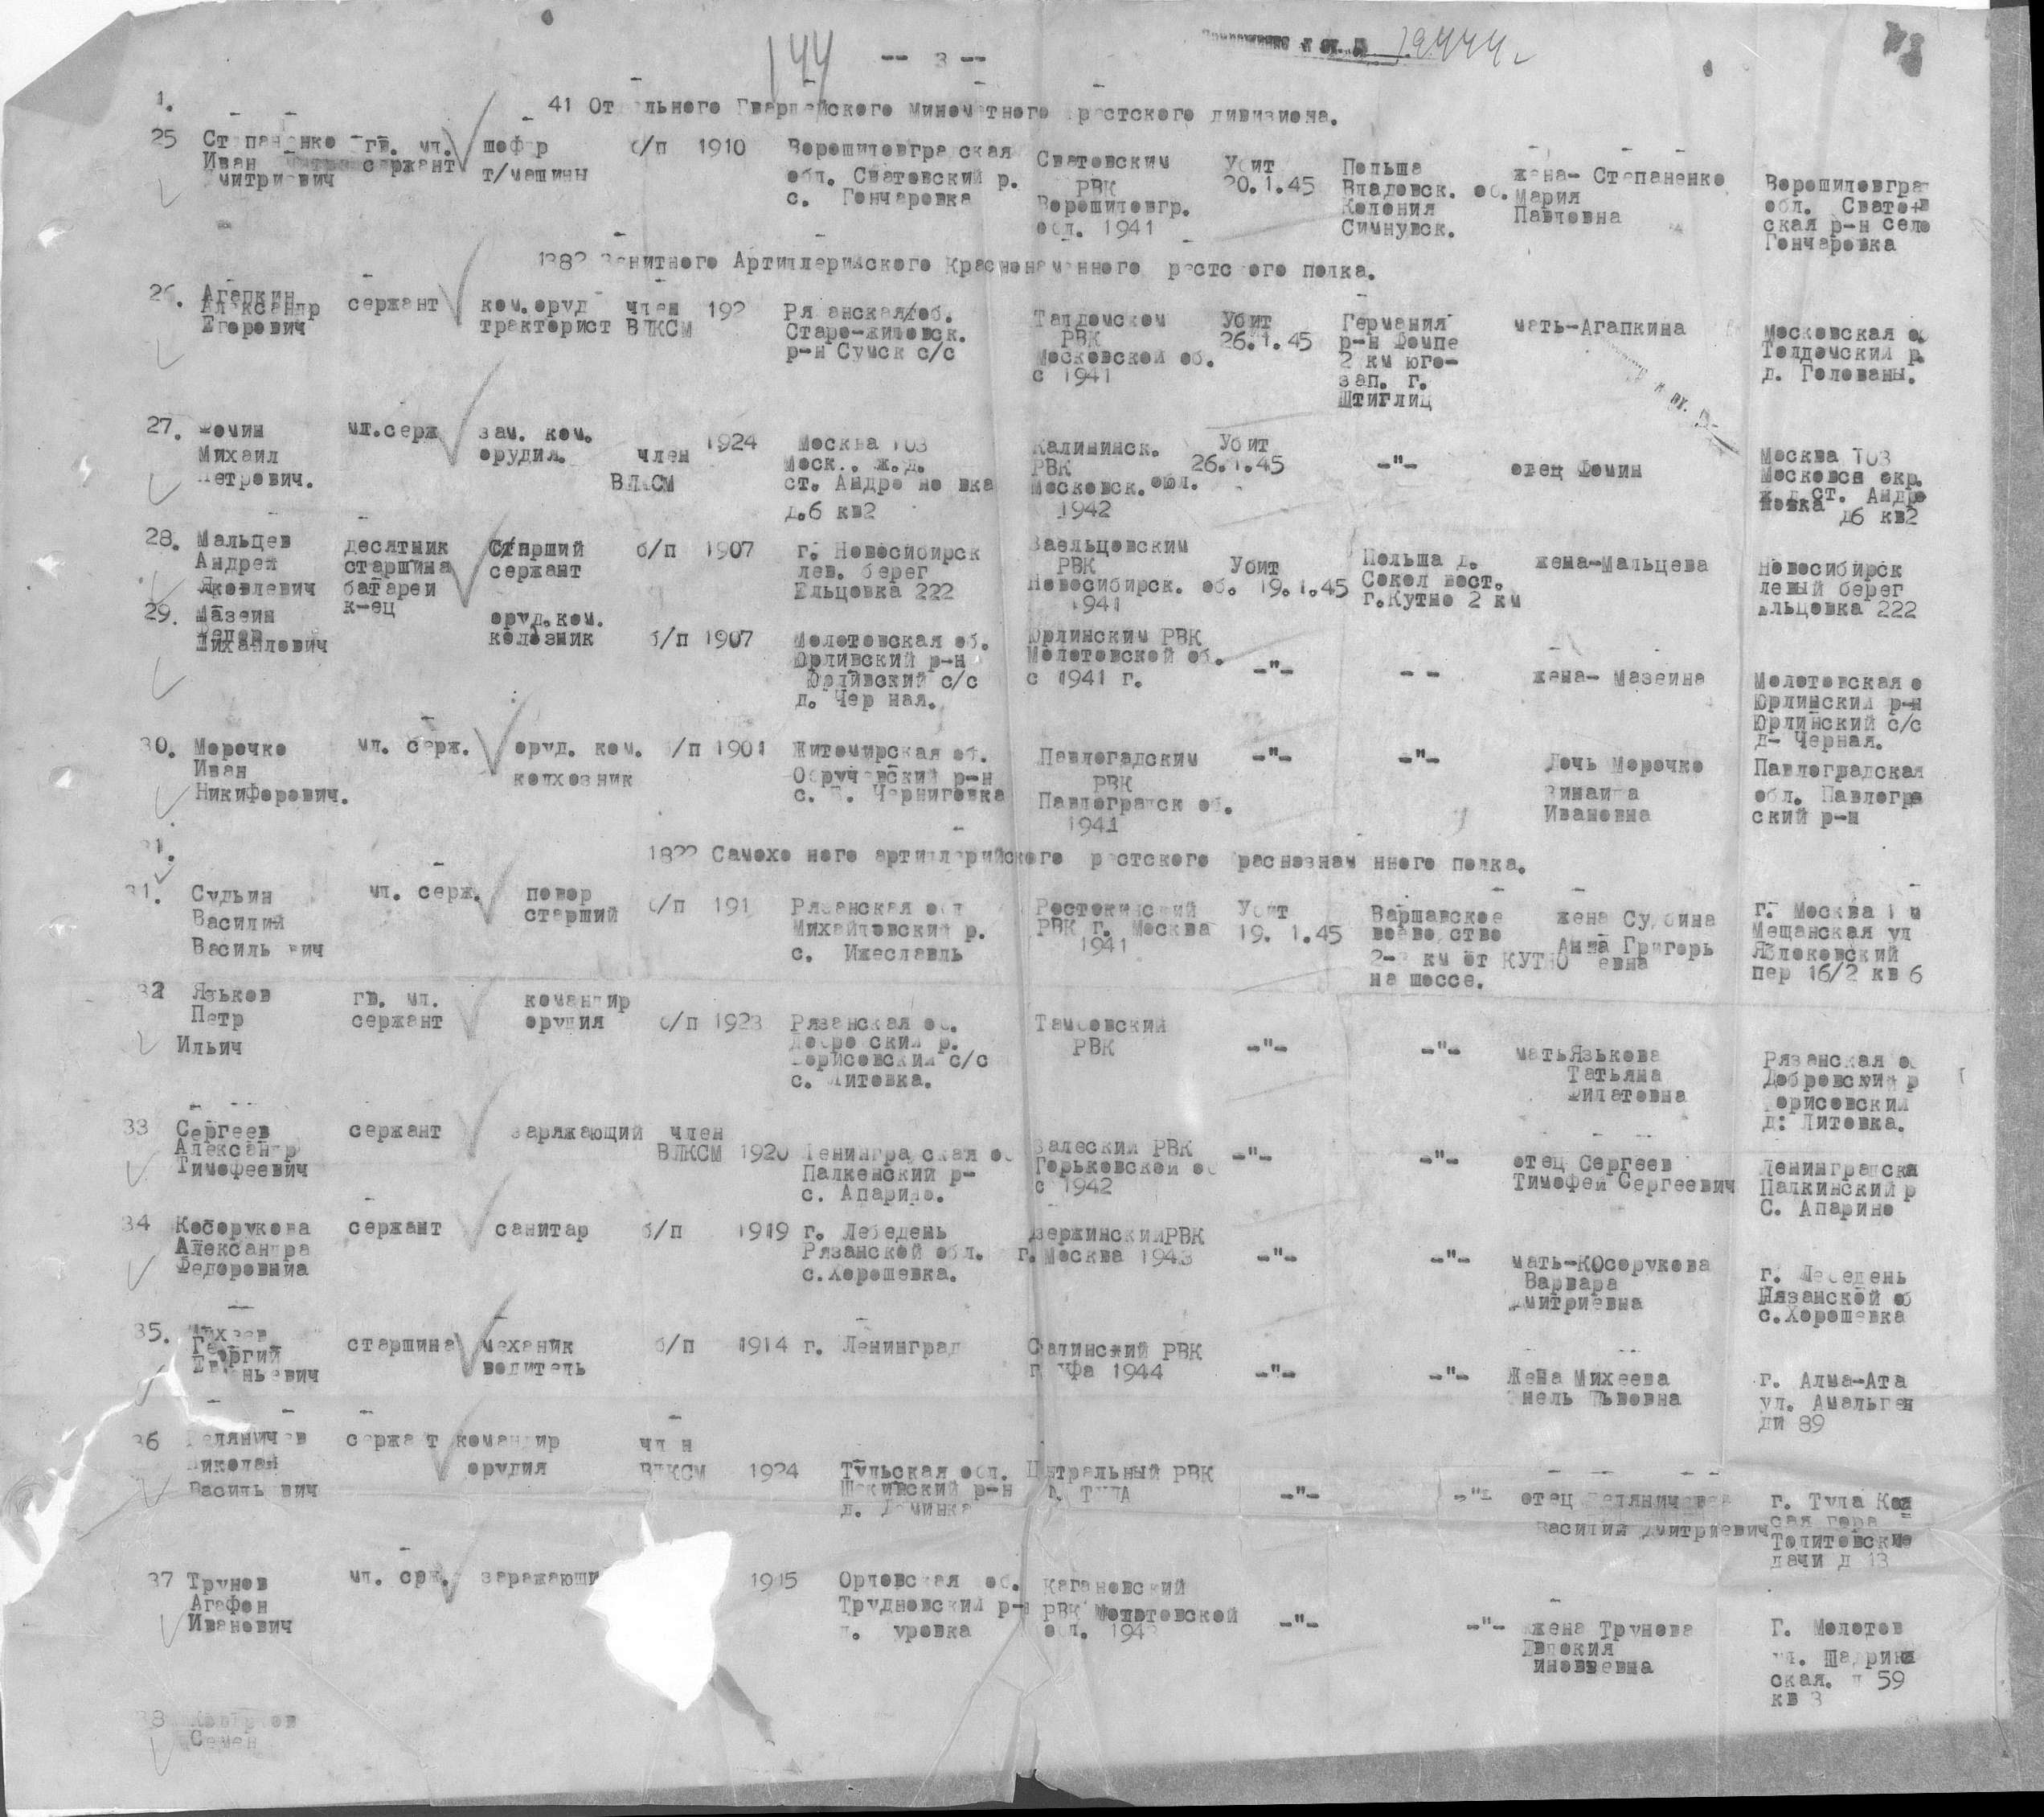 144
-- 3 --
19444
1.
41 Отдельного Гвардейского минометного Брестского дивизиона.
25 Степаненко гв. мл. шофер б/п 1910 Ворошиловградская Сватовским Убит Польша жена- Степаненко Ворошиловград
Иван сержант т/машины обл. Сватовский р. РВК 20.1.45 Владовск. об. Мария обл. Сватов
Дмитриевич с. Гончаровка Ворошиловгр. Колония Павловна ская р-н село
обл. 1941 Симнувск. Гончаровка
1382 Зенитного Артиллерийского Краснонаменного Брестского полка.
26. Агапкин сержант ком.оруд член 192 Рязанская об. Талдомском Убит Германия мать-Агапкина Московская об
Александр тракторист ВЛКСМ Старо-жиловск. РВК 26.1.45 р-н Фомпе Толдомский р.
Егорович р-н Сумск с/с Московской об. 2 км юго- д. Голованы.
с 1941 зап. г.
Штиглиц
27. Фомин мл.серж зам. ком. 1924 Москва 103 Калининск. Убит Москва 103
Михаил орудия. член Моск.. ж.д. РВК 26.1.45 -"- отец Фомин Московск окр.
Петрович. ВЛКСМ ст. Андроновка Московск. обл. ж.д.ст. Андро
д.6 кв2 1942 новка д6 кв2
28. Мальцев десятник Старший б/п 1907 г. Новосибирск Заельцовским Польша д. жена-Мальцева Новосибирск
Андрей старшина сержант лев. берег РВК Убит Сокол вост. левый берег
Яковлевич батареи Ельцовка 222 Новосибирск. об. 19.1.45 г.Кутно 2 км Ельцовка 222
к-ец 1941
29. Мазеин оруд.ком.
Федор колозник б/п 1907 Молотовская об. Юрлинским РВК
Михайлович Юрливский р-н Молотовской об. -"- - - жена- Мазеина Молотовская о
Юрливский с/с с 1941 г. Юрлинский р-н
д. Чер ная. Юрлинский с/с
д- Черная.
30. Морочко мл. серж. оруд. ком. б/п 1901 Житомирская об. Павлогадским -"- -"- Дочь Морочко Павлоградская
Иван колхозник Обручевский р-н РВК Зинаида обл. Павлогра
Никифорович. с. В. Черниговка Павлоградск об. Ивановна ский р-н
1941
31.
1822 Самоходного артиллерийского Брестского Краснознаменного полка.
31. Судьин мл. серж. повор б/п 191 Рязанская обл Ростокинский Убит Варшавское жена Г. Москва
Василий старший Михайловский р. РВК г. Москва 19. 1.45 воеводство Анна Григорь Мещанская ул
Васильевич с. Ижеславль 1941 2- км от КУТНО евна Яблоковский
на шоссе. пер 16/2 кв 6
32 Языков гв. мл. командир
Петр сержант орудия б/п 1923 Рязанская об. Тамбовский
Ильич Добровский р. РВК -"- -"- мать Языкова Рязанская об
Борисовский с/с Татьяна Добровский р
с. Литовка. Филатовна Борисовский
д: Литовка.
33 Сергеев сержант заряжающий член
Александр ВЛКСМ 1920 Ленинградская об Залеский РВК -"- -"- отец Сергеев Ленинградска
Тимофеевич Палкенский р- Горьковской об Тимофей Сергеевич Палкинский р
с. Апарино. с 1942 С. Апарино
34 Косорукова сержант санитар б/п 1919 г. Лебедень ДзержинскийРВК
Александра Рязанской обл. г. Москва 1943 -"- -"- мать-КОсорукова г. Лебедень
Федоровниа с.Хорошевка. Варвара Нязанской об
Дмитриевна с.Хорошевка
35. Михеев старшина механик б/п 1914 г. Ленинград Сталинский РВК
Георгий водитель г Уфа 1944 -"- -"- Жена Михеева г. Алма-Ата
Евгеньевич Львовна ул. Амальген
ди 89
36 сержант командир член
Николай орудия ВЛКСМ 1924 Тульская обл. Центральный РВК
Васильевич Шекинский р-н г. ТУЛА -"- -"- отец г. Тула
д. Деминка Василий Дмитриевич сая гора
Толитовские
дачи д 13
37 Трунов мл. срж. заражающий 1915 Орловская об. Кагановский
Агафон Трудновский р-н РВК Молотовской -"- -"- жена Трунова Г. Молотов
Иванович уровка обл. 194 Евдокия ул. Шадрин
ская. д 59
кв 3
38
Семен